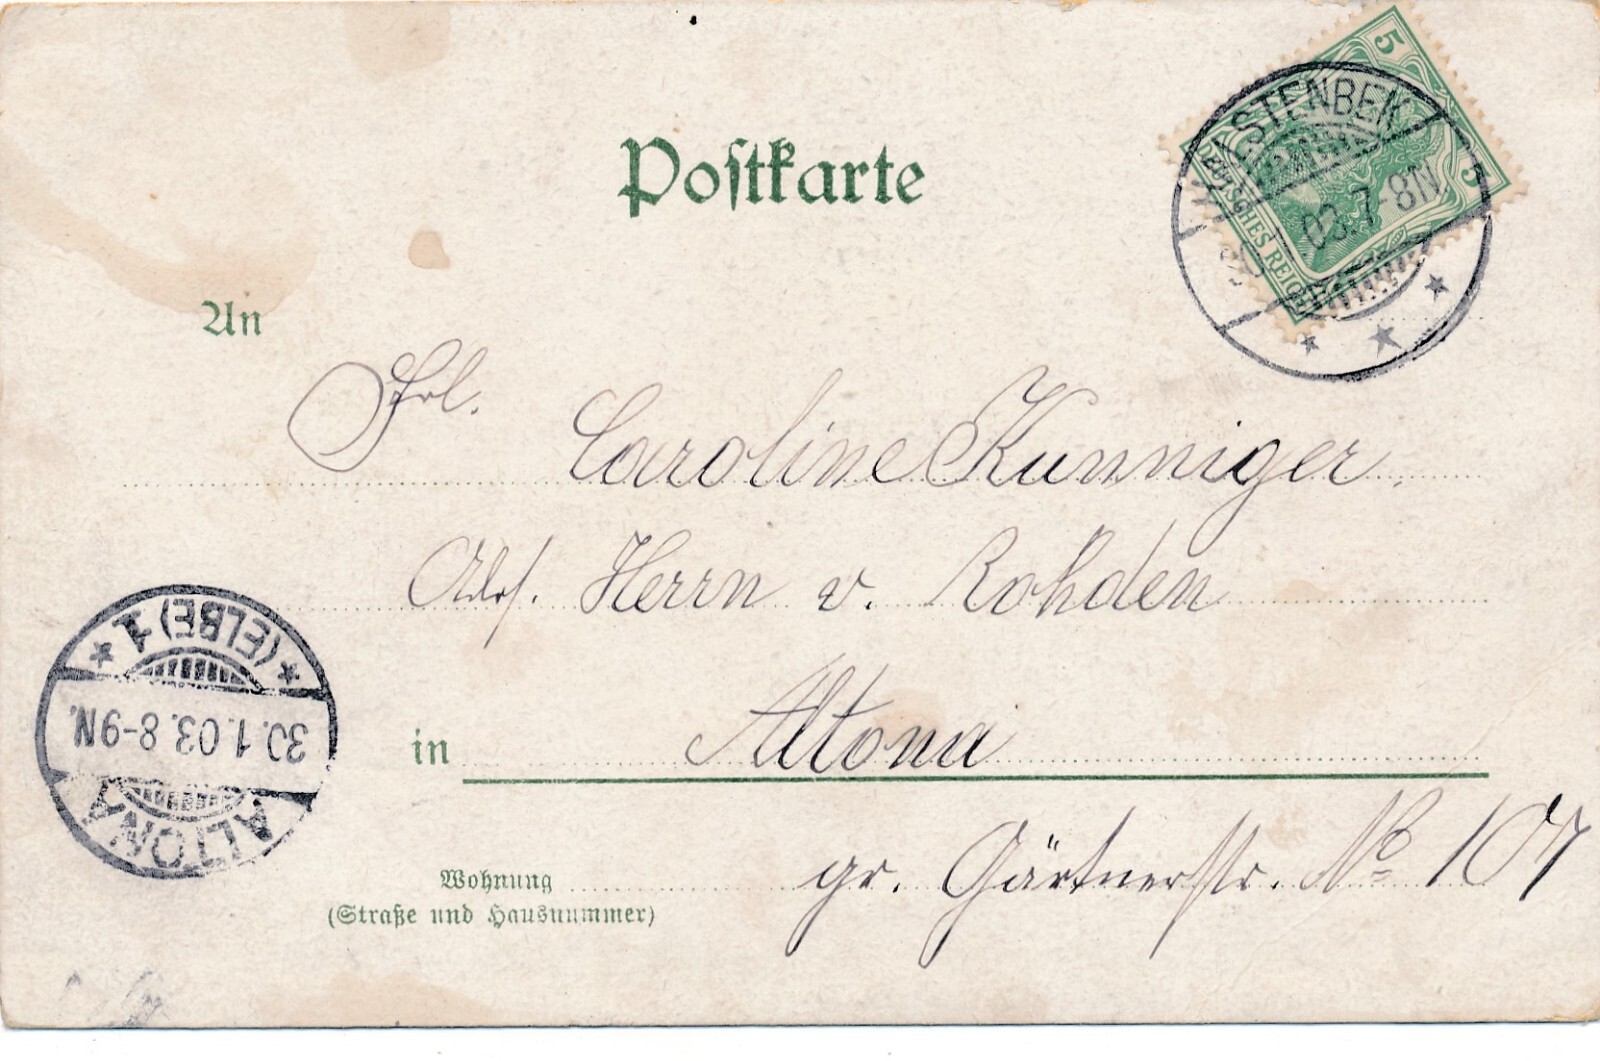 Postkarte
5
5
DEUTSCHES REICH
STENBEK
03.7-8N.
An
Frl. Caroline Kunniger.
Adr. Herrn v. Rohden
in Altona
Wohnung gr. Gärtnerstr. No 107
(Straße und Hausnummer)
ALTONA
30.1.03.8-9N.
* (ELBE) 1 *